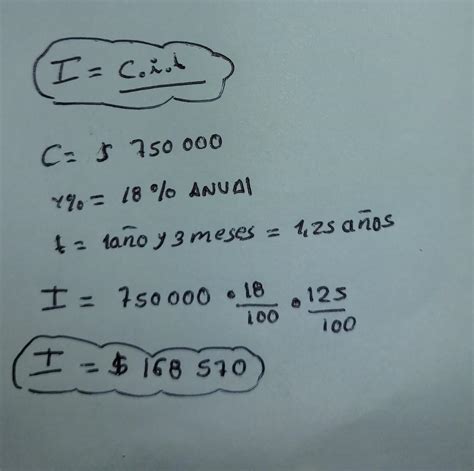 I = C.i.t
C = $ 750 000
r% = 18 % ANUAl
t = 1año y 3 meses = 1,25 años
I = 750000 • 18/100 • 125/100
I = $ 168 570